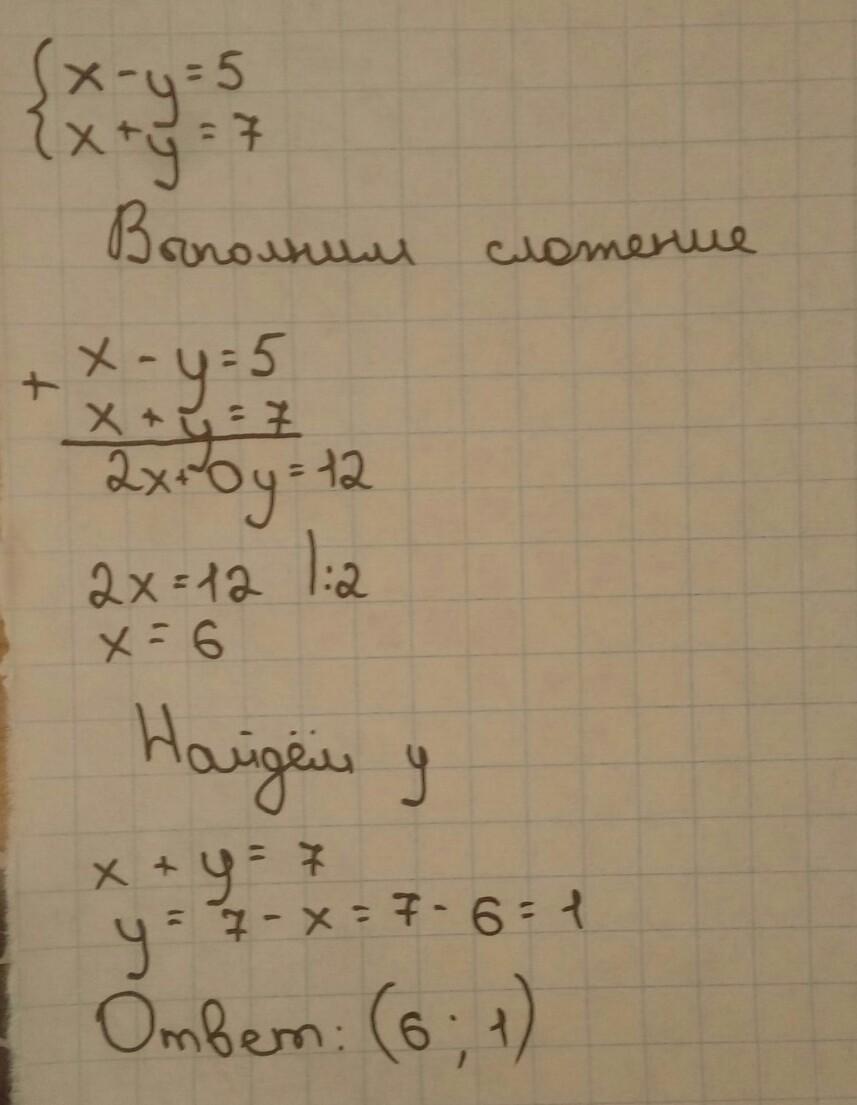 { x - y = 5
x + y = 7
Выполним сложение
+ x - y = 5
x + y = 7
2x + 0y = 12
2x = 12 |:2
x = 6
Найдём y
x + y = 7
y = 7 - x = 7 - 6 = 1
Ответ: (6; 1)